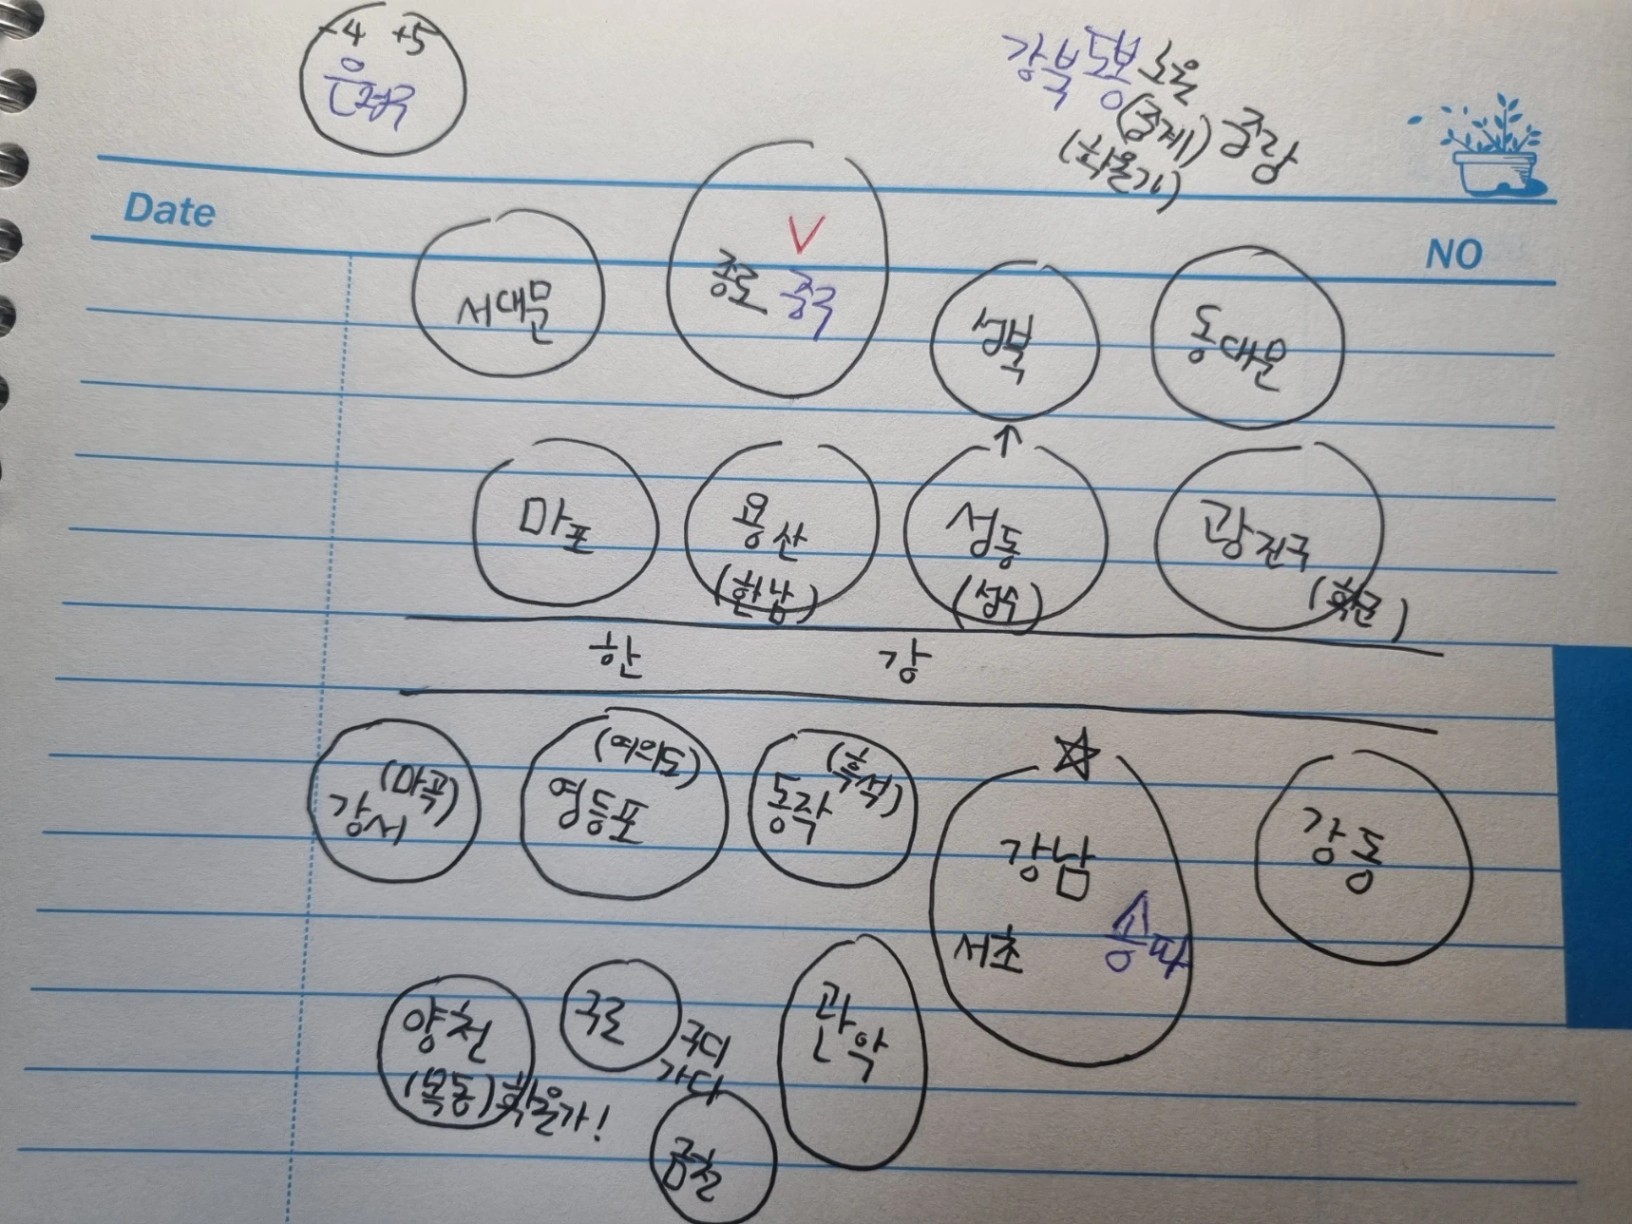 -4 +5
은평
강북 도봉 노원
(중계) 중랑
(학원가)
Date
NO
서대문
종로 중구
V
성북
동대문
↑
마포
용산
(한남)
성동
(성수)
광진구
(학군)
한 강
(마곡)
강서
(여의도)
영등포
(흑석)
동작
☆
강남
서초 송파
강동
양천
(목동)학원가!
구로
구디
가디
금천
관악